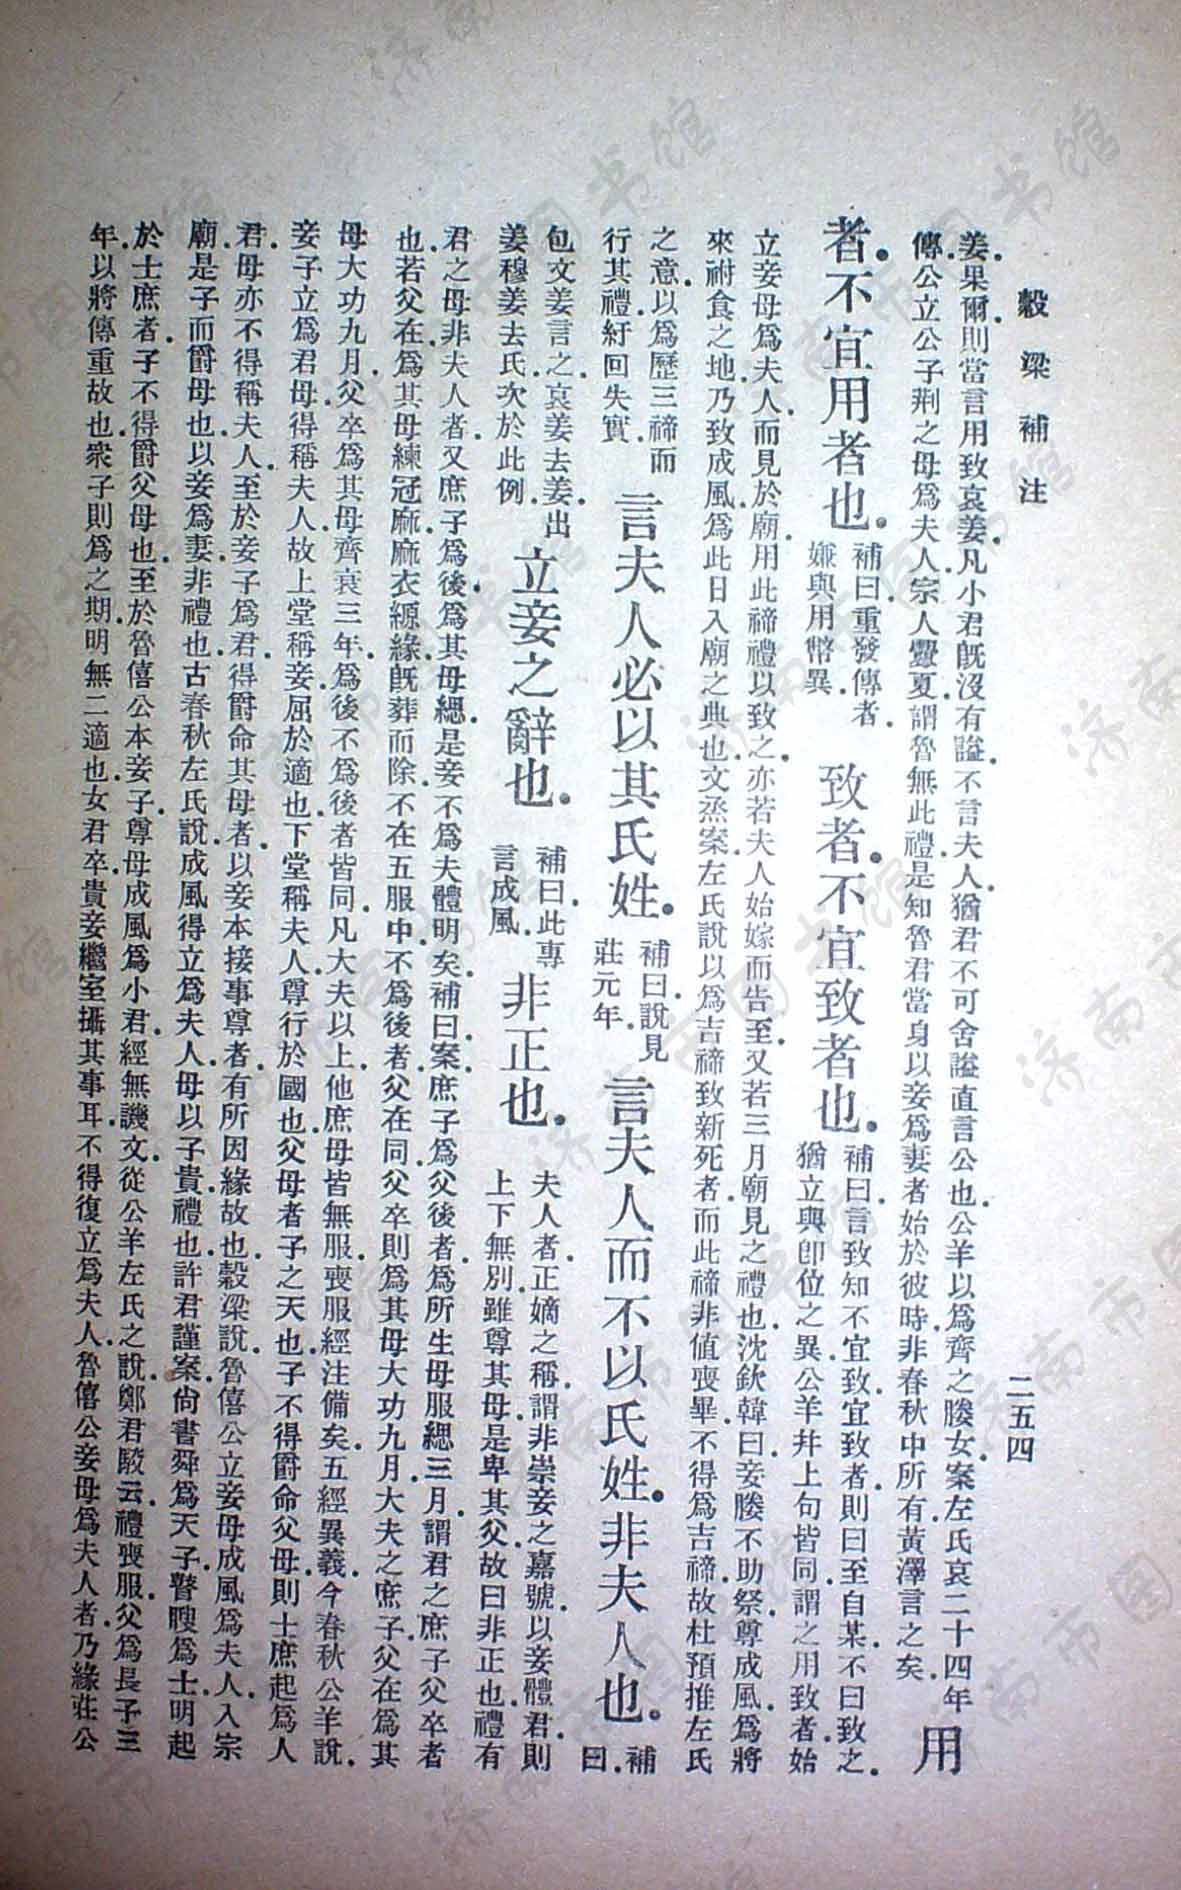 穀梁補注
二五四
姜.果爾.則當言用致哀姜.凡小君旣沒有謚.不言夫人.猶君不可舍謚直言公也.公羊以爲齊之媵女.案左氏哀二十四年
傳.公立公子荆之母爲夫人.宗人釁夏.謂魯無此禮.是知魯君當身以妾爲妻者.始於彼時.非春秋中所有.黃澤言之矣.
用
者.不宜用者也.
補曰.重發傳者.
嫌與用幣異.
致者.不宜致者也.
補曰.言致知不宜致.宜致者.則曰至自某.不曰致之.
猶立與卽位之異.公羊幷上句皆同.謂之用致者.始
立妾母爲夫人.而見於廟.用此禘禮以致之.亦若夫人始嫁而告至.又若三月廟見之禮也.沈欽韓曰.妾媵不助祭.尊成風.爲將
來祔食之地.乃致成風.爲此日入廟之典也.文烝案.左氏說以爲吉禘致新死者.而此禘非值喪畢.不得爲吉禘.故杜預推左氏
之意.以爲歷三禘而
行其禮.紆回失實.
言夫人必以其氏姓.
補曰.說見
莊元年.
言夫人而不以氏姓.非夫人也.
補
曰.
包文姜言之.哀姜去姜.出
姜穆姜去氏.次於此例.
立妾之辭也.
補曰.此專
言成風.
非正也.
夫人者.正嫡之稱.謂非崇妾之嘉號.以妾體君.則
上下無別.雖尊其母.是卑其父.故曰非正也.禮有
君之母非夫人者.又庶子爲後.爲其母緦.是妾不爲夫體明矣.補曰.案庶子爲父後者.爲所生母服緦三月.謂君之庶子父卒者
也.若父在.爲其母練冠麻.麻衣縓緣.旣葬而除.不在五服中.不爲後者.父在同.父卒則爲其母大功九月.大夫之庶子.父在爲其
母大功九月.父卒爲其母齊衰三年.爲後不爲後者皆同.凡大夫以上.他庶母皆無服.喪服經注備矣.五經異義.今春秋公羊說.
妾子立爲君.母得稱夫人.故上堂稱妾.屈於適也.下堂稱夫人.尊行於國也.父母者.子之天也.子不得爵命父母.則士庶起爲人
君.母亦不得稱夫人.至於妾子爲君.得爵命其母者.以妾本接事尊者.有所因緣故也.穀梁說.魯僖公立妾母成風爲夫人.入宗
廟.是子而爵母也.以妾爲妻.非禮也.古春秋左氏說.成風得立爲夫人.母以子貴.禮也.許君謹案.尙書舜爲天子.瞽瞍爲士.明起
於士庶者.子不得爵父母也.至於魯僖公本妾子.尊母成風爲小君.經無譏文.從公羊左氏之說.鄭君駮云.禮喪服.父爲長子三
年.以將傳重故也.衆子則爲之期.明無二適也.女君卒.貴妾繼室攝其事耳.不得復立爲夫人.魯僖公妾母爲夫人者.乃緣莊公